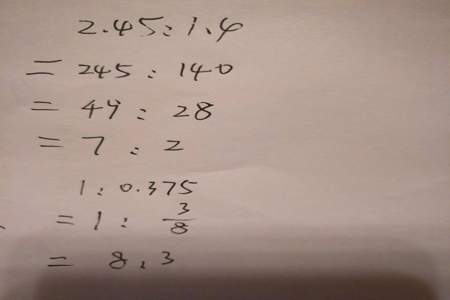 2.45:1.4
= 245 : 140
= 49 : 28
= 7 : 2
1:0.375
= 1 : 3/8
= 8:3